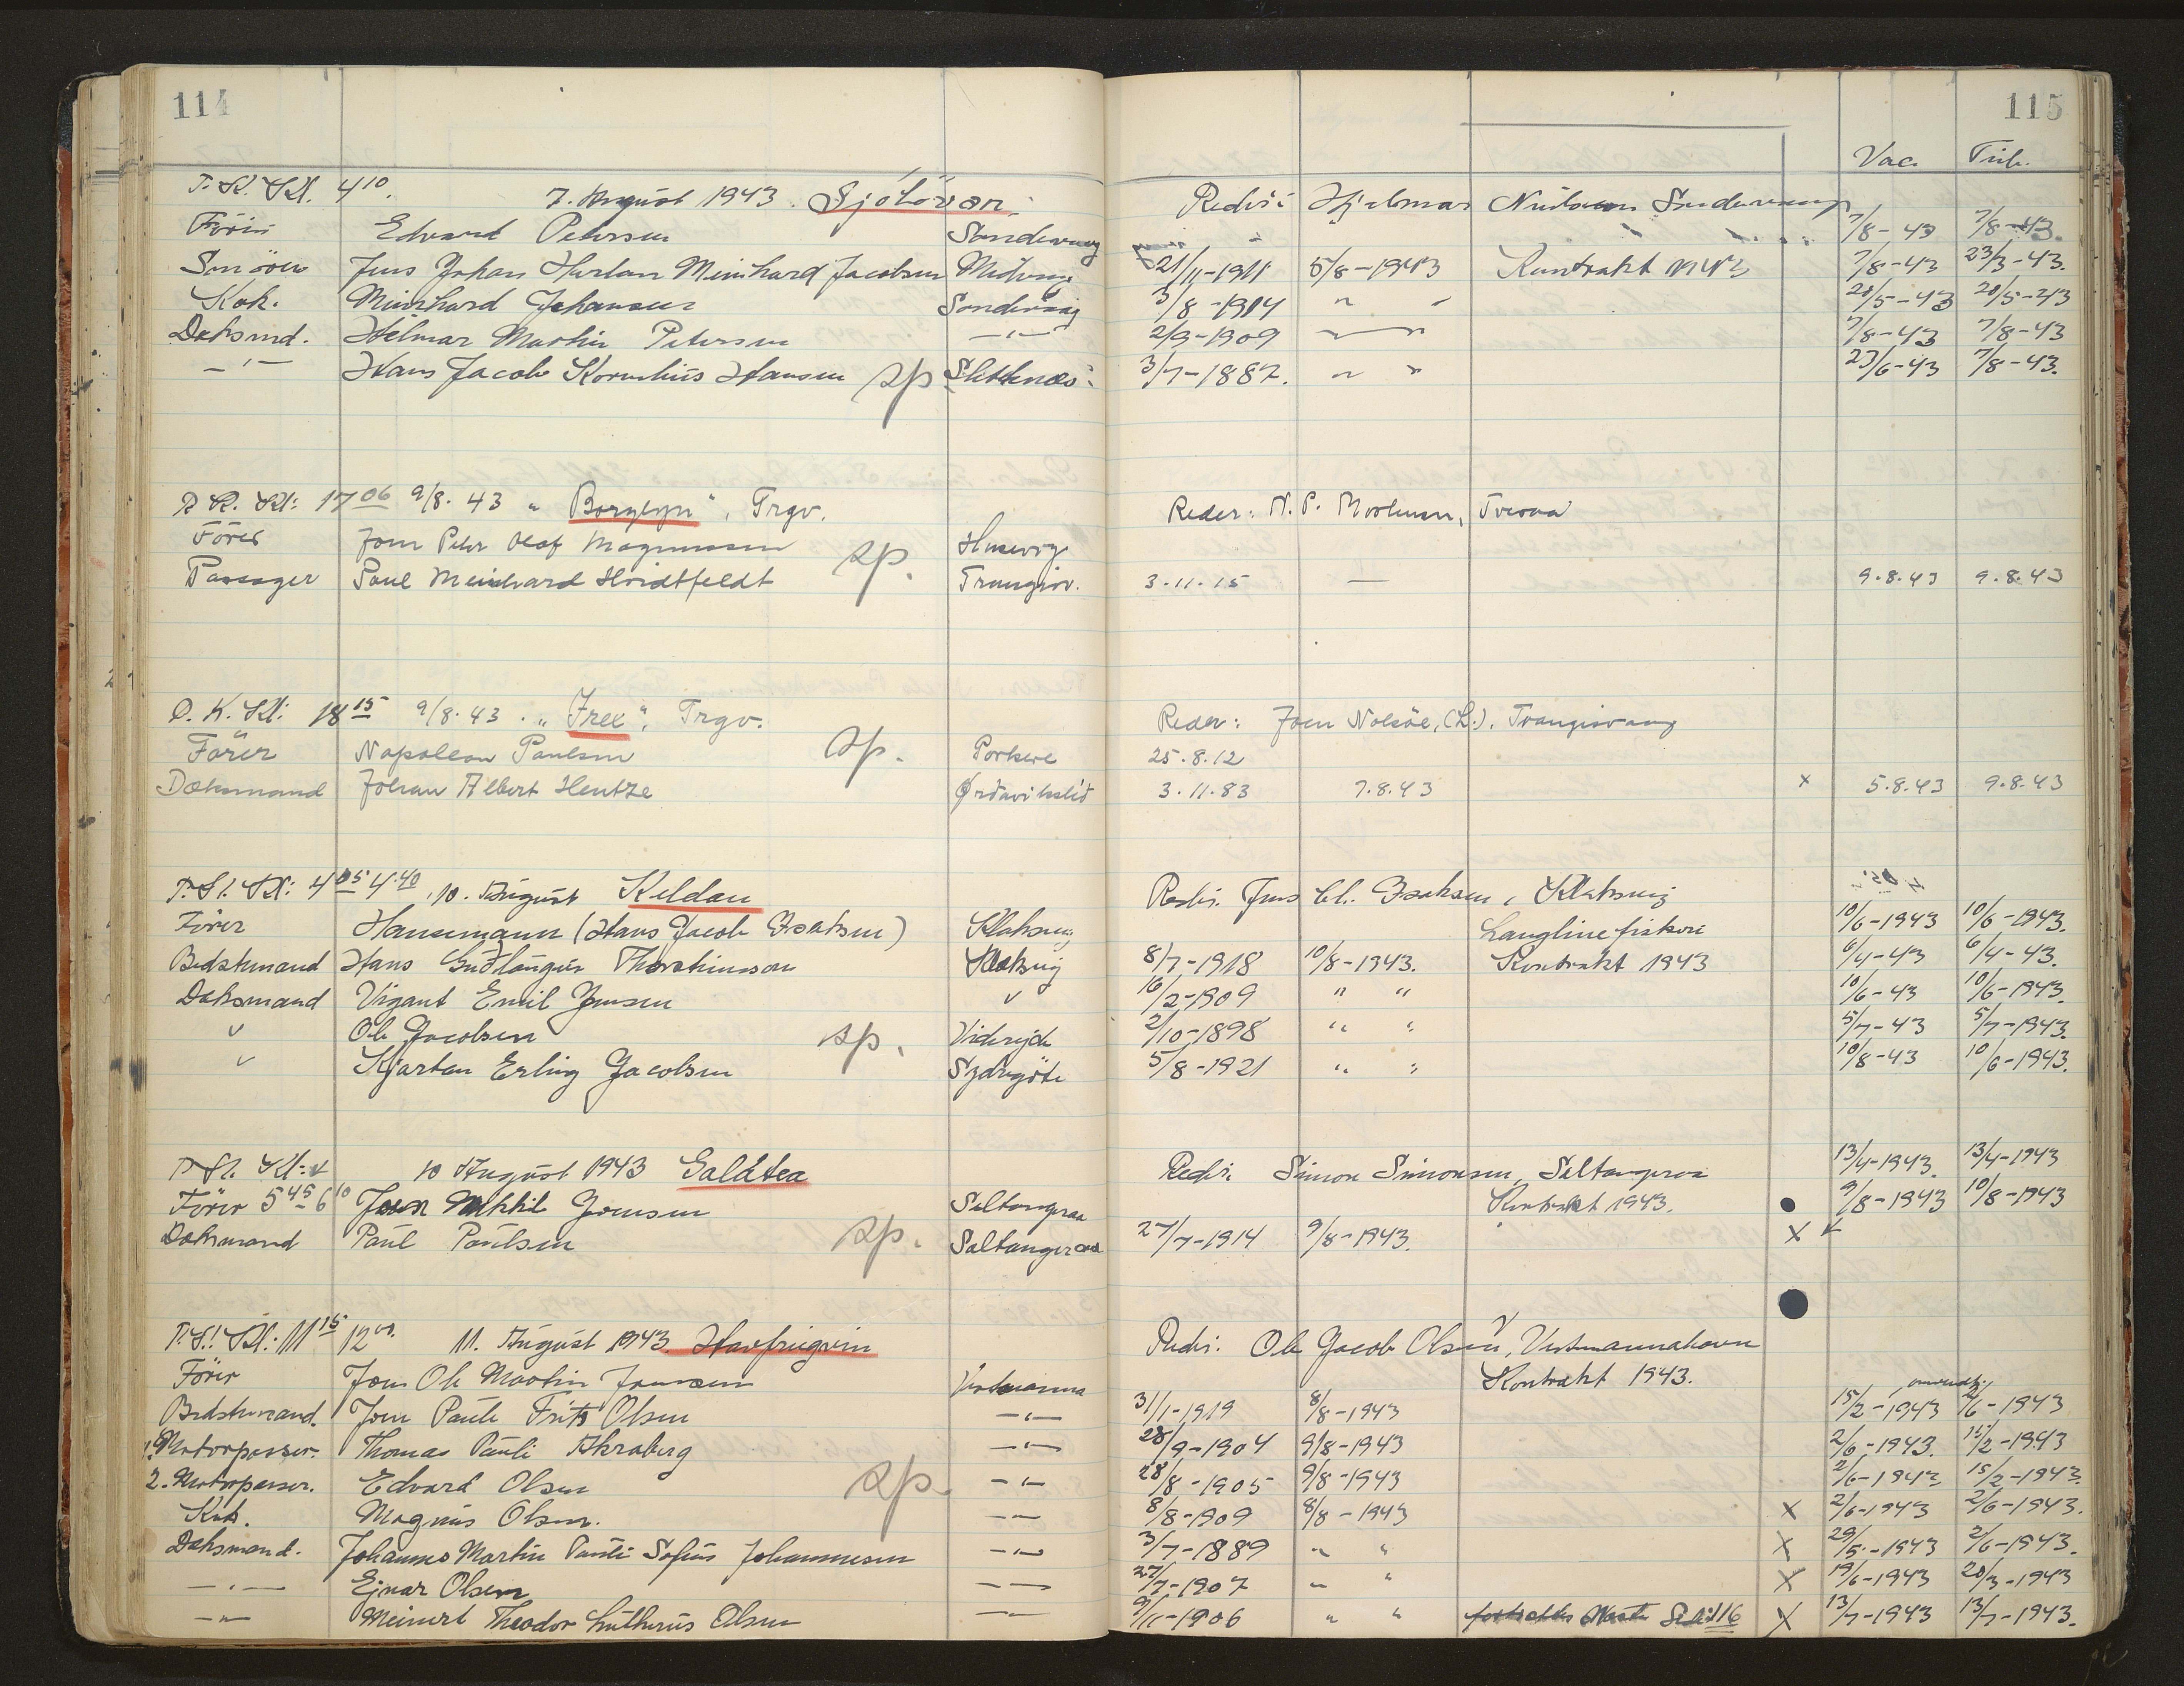 114
115
Vac. Tub.
P. K. Kl. 4 10. 7. August 1943. Sjóbövn. Rederi Hjalmar
Förer Edvard Petersen Sandevaag 7/8-43 7/8-43.
Jens Johan Meinhard Jacobsen Midvaag 21/11-1911 5/8-1943 Kontrakt 1943 7/8-43 23/3-43.
Kok. Meinhard Johansen Sandevaag 3/8-1914 " " 28/5-43 28/5-43
Daksmd. Helmar Martin Petersen —"— 2/9-1909 7/8-43 7/8-43
—"— Hans Jacob Kornelius Hansen sp. 3/7-1887. " " 23/6-43 7/8-43.
P. K. Kl: 17 06 9/8. 43 " Borglyn", Trgv. Reder: N. P. Mortensen, Tveraa
Förer Joen Peter Olaf Magnussen sp. Husevig
Passager Poul Meinhard Hvidtfeldt Trangisv. 3.11.15 — 9.8.43 9.8.43
P. K. Kl: 18 15 9/8.43. "Frex", Trgv. Reder: Joen Nolsöe, (L.), Trangisvaag
Förer Napoleon Poulsen sp. Porkere 25.8.12
Daksmand Johan Albert Hentze Ørdavikslid 3.11.83 7.8.43 x 5.8.43 9.8.43
P. Sl. Kl: 4 05 4.40, 10. August Keldan Redri. Jens Chr. Isaksen, Klaksvig
Förer Hansemann (Hans Jacob Isaksen) Klaksvig Langline fiskeri 10/6-1943 10/6-1943.
Bedstemand Hans Gudlaugur Thorsteinsson Klaksvig 8/7-1918 10/8-1943. Kontrakt 1943 6/4-43 6/4-43.
Daksmand Vigant Emil Jensen " 16/2-1909 " " 10/6-43 10/6-1943.
" Ole Jacobsen sp. Videreide 2/10-1898 " " 5/7-43 5/7-1943.
" Kjartan Erling Jacobsen Sydregöte 5/8-1921 " " 10/8-43 10/6-1943.
P. Sl. Kl: 10 August 1943 Galatea Redri Simon Simonsen, Saltangeraa 13/4-1943. 13/4-1943
Förer 5 45 6 10 Joen Mikkel Joensen Saltangeraa Kontrakt 1943. 9/8-1943 10/8-1943
Daksmand Paul Poulsen sp. Saltangeraa 27/7-1914 9/8-1943. x
P. Sl. Kl. 11 15 12 00. 11. August 1943. Havfrugvin Redri. Ole Jacob Olsen, Vestmannahavn
Förer Joen Ole Martin Joensen Vestmanna Kontrakt 1943.
Bedstemand. Joen Pauli Frits Olsen —"— 31/1-1919 8/8-1943 15/2-1943 2/6-1943
1. Motorpasser. Thomas Pauli Akraberg —"— 28/9-1904 9/8-1943 2/6-1943. 15/2-1943
2. Motorpasser. Edvard Olsen sp. —"— 28/8-1905 9/8-1943 2/6-1943 15/2-1943.
Kok. Magnus Olsen. —"— 8/8-1909 8/8-1943 x 2/6-1943 2/6-1943.
Daksmand. Johannes Martin Pauli Sofus Johannesen —"— 3/7-1889 " " x 29/5-1943 2/6-1943.
—"— Ejnar Olsen —"— 27/7-1907 " " x 19/6-1943 20/3-1943
—"— Meinert Theodor Lutherus Olsen —"— 9/11-1906 " " fortsættes Næste Side 116 x 13/7-1943 13/7-1943.